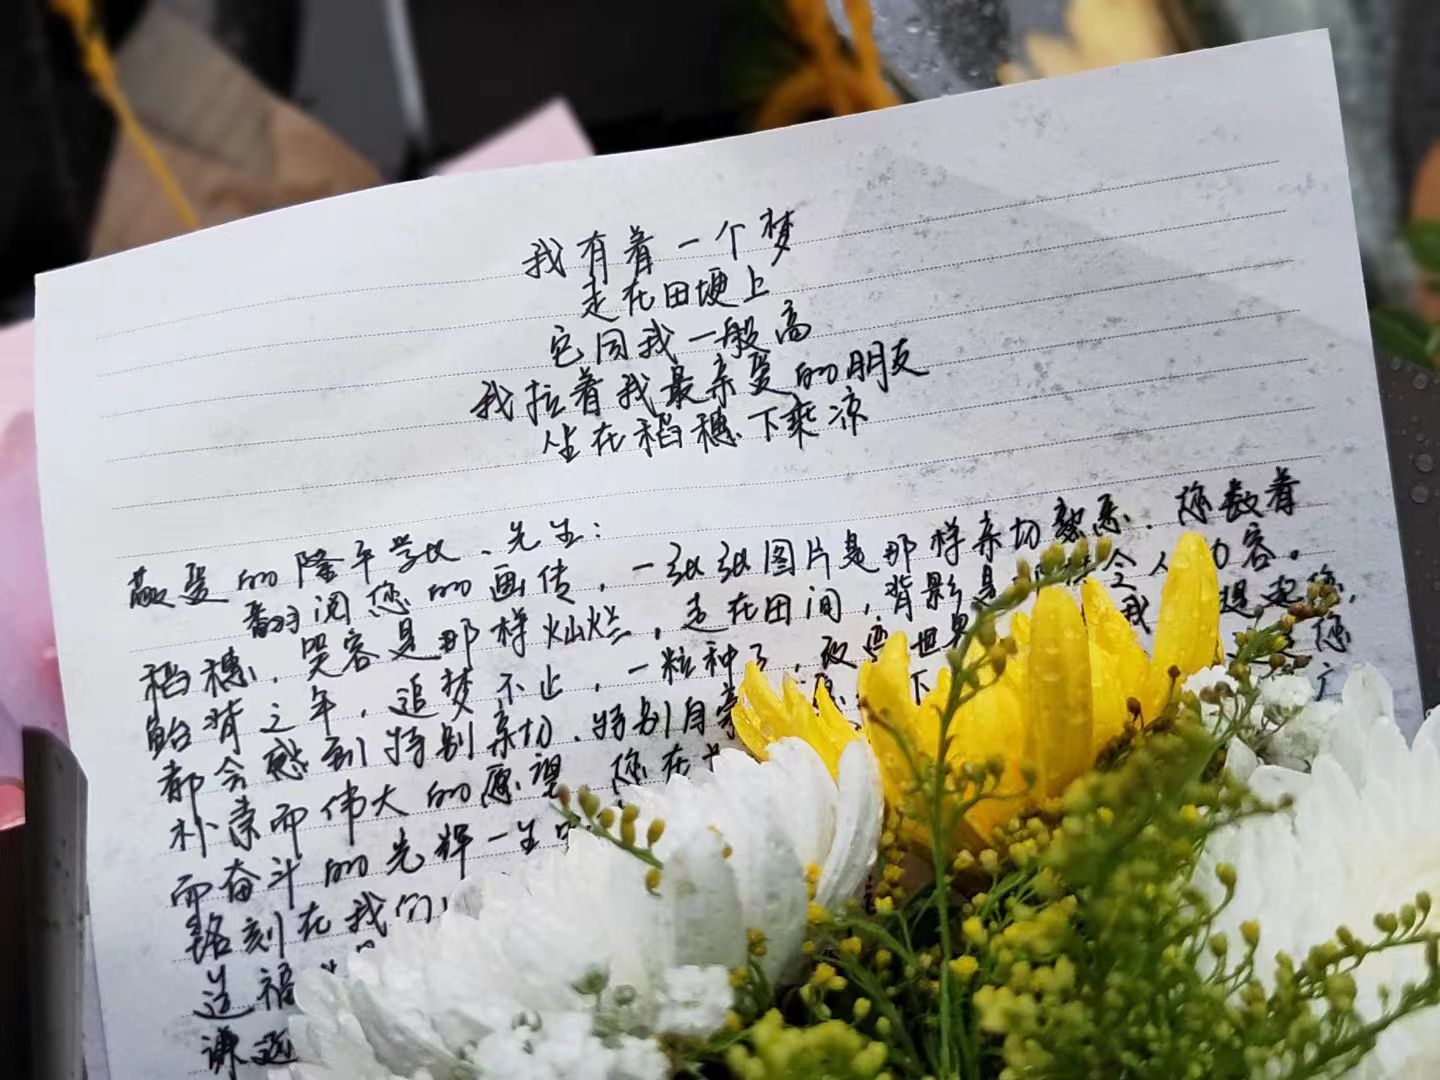 我有着一个梦
走在田埂上
它同我一般高
我拉着我最亲爱的朋友
坐在稻穗下乘凉
敬爱的隆平学长、先生：
翻阅您的画传，一张张图片是那样亲切熟悉，您数着
稻穗，笑容是那样灿烂，走在田间，背影是 令人 容。
鲐背之年，追梦不止，一粒种子，改变世界 我 想起您，
都会感到特别亲切、特别自豪 下 是您
朴素而伟大的愿望，您在 广
而奋斗的光辉一生中
铭刻在我们
造福
谦逊